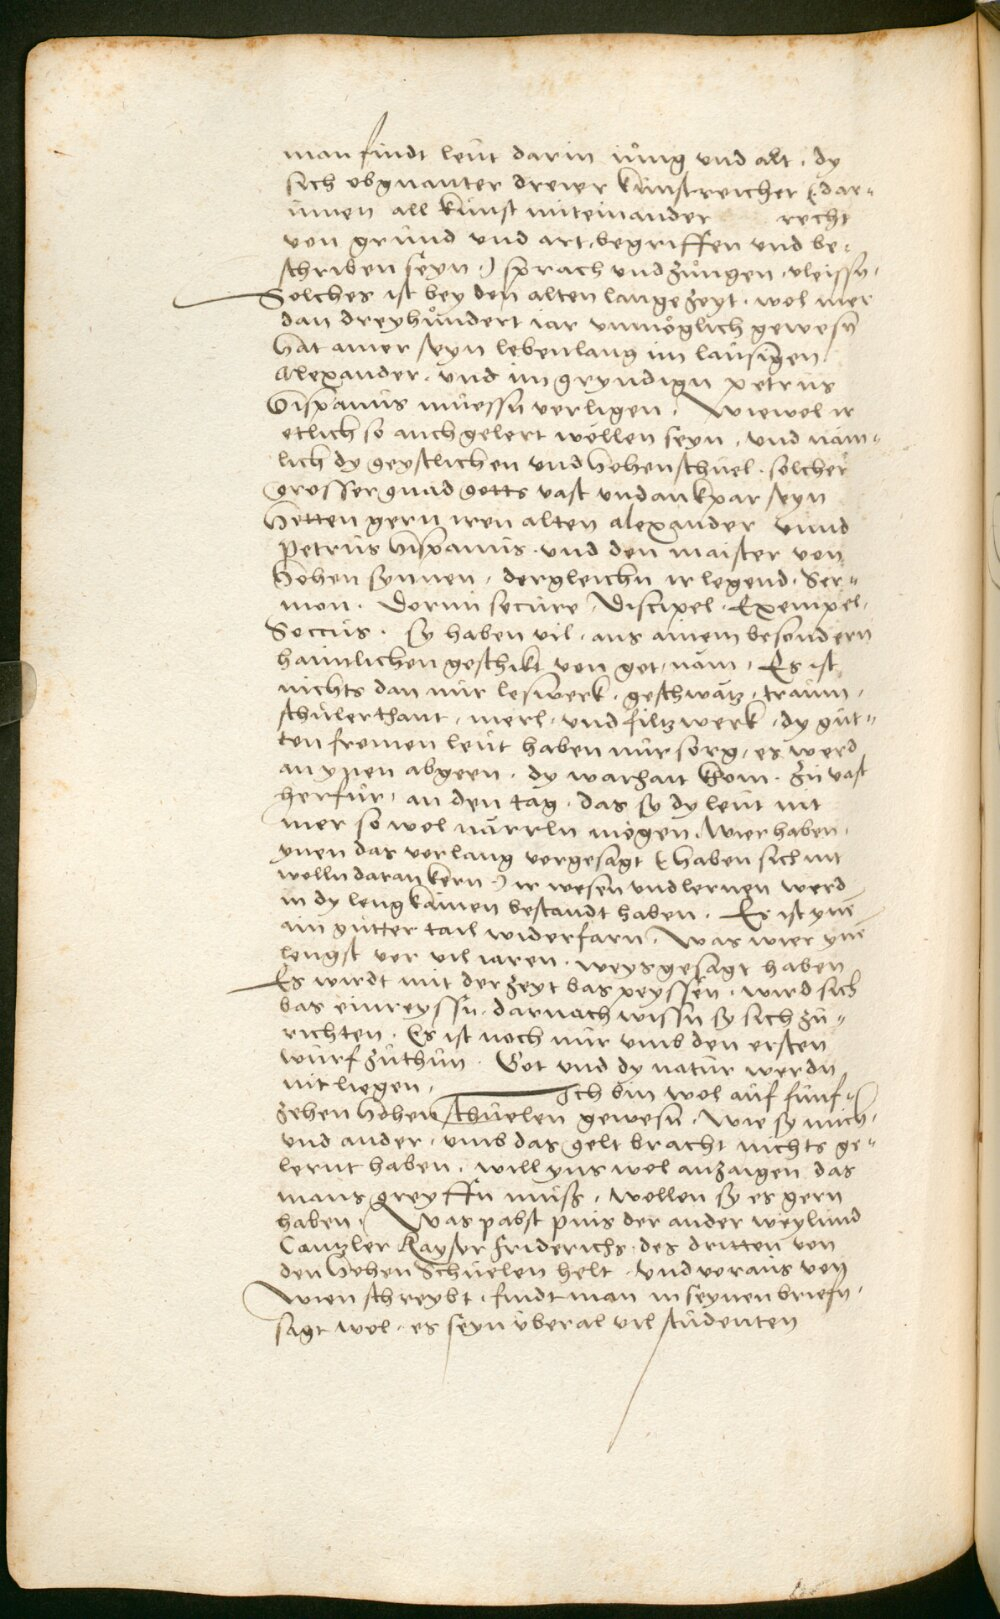 man findt leut darin iung vnd alt, dy
sich obgnanter dreier kunstreicher (dar=
innen all kunst miteinander recht
von grund vnd art, begriffen vnd be=
schriben seyn,) sprach vnd zungen, vleissn,
Solches ist bey den alten lange zeyt, wol mer
dan dreyhundert iar vnmöglich gewesn
hat ainer seyn lebenlang im lausigen
Alexander, vnd im gryndign petrus
hispanus müessn verligen, Wiewol ir
etlich so auch gelert wöllen seyn, vnd näm=
lich dy geystlichen vnd hohenschuel, solcher
grosser gnad gotts vast vndankpar seyn
hetten gern iren alten alexander vnnd
Petrus hispanus, vnd den maister von
hohen synnen, dergleichn ir legend, Ser=
mon, Dormi secure, Discipel, Exempel,
Soccus, sy haben vil, aus ainem besondern
haimlichen geschikt von got, näm, Es ist
nichts dan nur leswerk, geschwätz, traum,
schulerthant, merl, vnd filtzwerk, dy gut=
ten fromen leut haben nur sorg, es werd
an ynen abgeen, dy warhait khom, zu vast
herfur, an den tag, das sy dy leut nit
mer so wol närrln mögen, Wier haben,
ynen das vorlang vorgesagt (haben sich nit
wolln daran kern,) ir wesen vnd lernen werd
in dy leng kainen bestandt haben, Es ist yne
ain gutter tail widerfarn, Was wier yne
lengst vor vil iaren, weysgesagt haben
Es wirdt mit der zeyt bas peyssen, wird sich
bas einreyssn, darnach wissn sy sich zu=
richten, Es ist noch nur vmb den ersten
wurf zuthun, Got vnd dy natur werdn
nit liegen, Ich bin wol auf funf=
zehen hohen schuelen gewesn, wie sy mich,
vnd ander, vmb das gelt bracht nichts ge=
lernt haben, will yns wol anzaigen das
mans greyffn muss, wollen sy es gern
haben, Was pabst pius der ander weylund
Cantzler Kayser Friderichs, des dritten von
den hohen Schuelen helt, vnd voraus von
Wien schreybt, findt man in seynen briefn,
sagt wol, es seyn vberal vil studenten